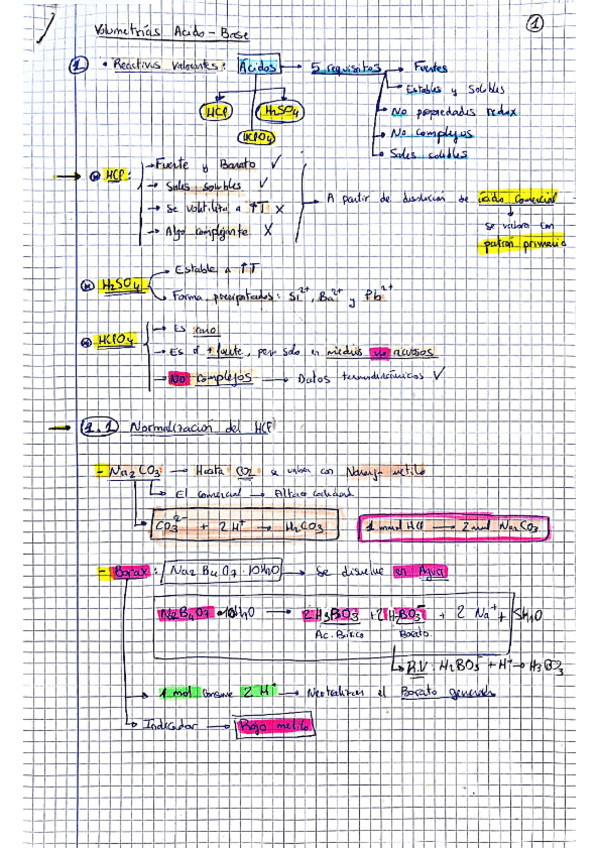 1
Volumetrías Acido-Base
1 • Reactivos valorantes: Acidos → 5 requisitos → Fuertes
→ Estables y Solubles
HCl H2SO4 → No propiedades redox
HClO4 → No complejos
→ Sales solubles
→ * HCl: → Fuerte y Barato ✓
→ Sales solubles ✓ → A partir de disolución de ácido comercial
→ Se volatiliza a ↑T X se valora con
→ Algo complejante X patrón primario
* H2SO4 → Estable a ↑T
→ Forma precipitados: Sr2+, Ba2+ y Pb2+
* HClO4 → Es caro
→ Es el + fuerte, pero solo en medios no acuosos
→ No complejos → Datos termodinámicos ✓
→ 1.1 Normalizacion del HCl
- Na2CO3 → Hasta CO2 se valora con Naranja metilo
→ El comercial → Alta calidad
→ CO3 2- + 2H+ → H2CO3 1 mmol HCl → 2 mol Na2CO3
- Borax: Na2B4O7·10H2O → Se disuelve en Agua
Na2B4O7·10H2O → 2H3BO3 + 2H2BO3- + 2Na+ + 5H2O
Ac. Bórico Borato
→ R.V: H2BO3- + H+ → H3BO3
→ 1 mol consume 2H+ → Neutralizan el Borato generado
→ Indicador → Rojo metilo